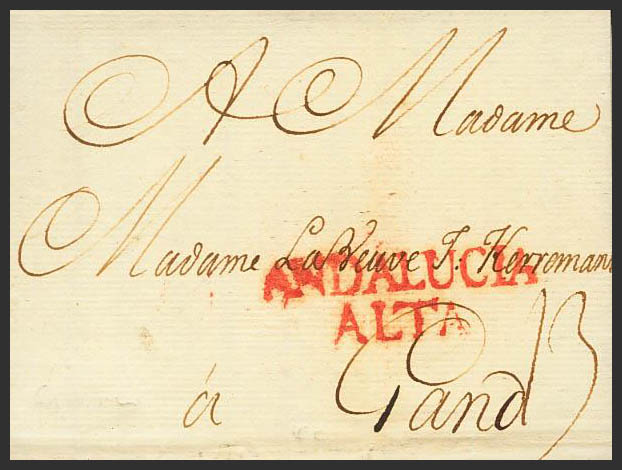 A Madame
Madame La Veuve J. Herremans
ANDALUCIA
ALTA
á Gand 13